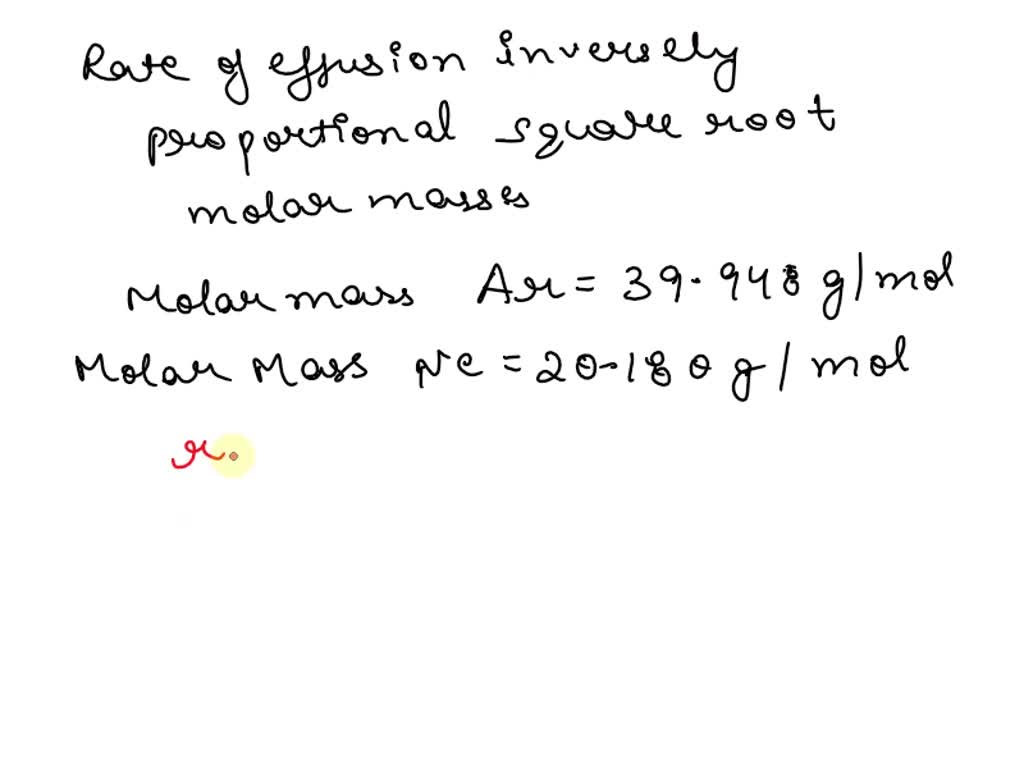 Rate of effusion inversely
proportional square root
molar masses
Molar mass Ar = 39.948 g/mol
Molar Mass Ne = 20.180 g/mol
r.